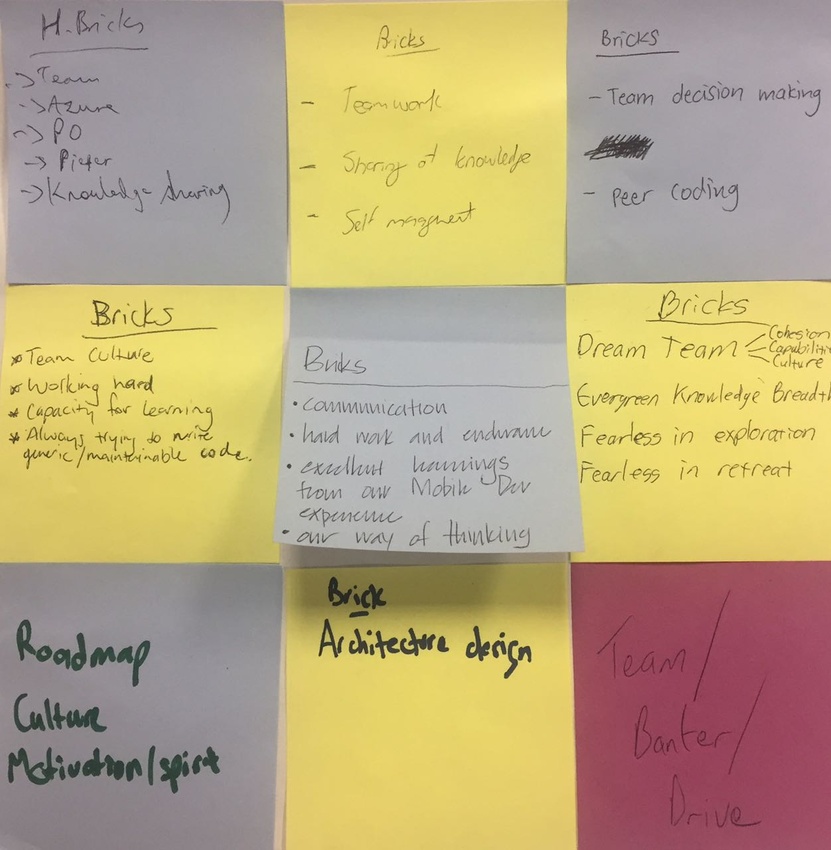 H-Bricks
-> Team
-> Azure
-> PO
-> Pieter
-> Knowledge sharing
Bricks
- Teamwork
- Sharing of knowledge
- Self managment
Bricks
- Team decision making
- peer coding
Bricks
* Team culture
* Working hard
* Capacity for learning
* Always trying to write
generic/maintainable code.
Bricks
• communication
• hard work and endurance
• excellent learnings
from our Mobile Dev
experience
• our way of thinking
Bricks
Dream Team
Cohesion
Capabiliti
Culture
Evergreen Knowledge Breadth
Fearless in exploration
Fearless in retreat
Roadmap
Culture
Motivation/spirit
Brick
Architecture design
Team/
Banter/
Drive